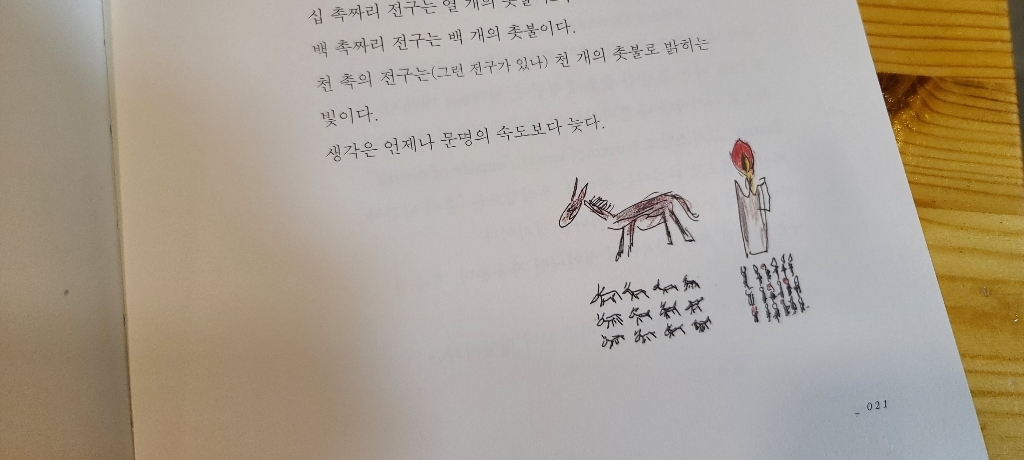 십 촉짜리 전구는 열 개의 촛불
백 촉짜리 전구는 백 개의 촛불이다.
천 촉의 전구는(그런 전구가 있나) 천 개의 촛불로 밝히는
빛이다.
생각은 언제나 문명의 속도보다 늦다.
_ 021